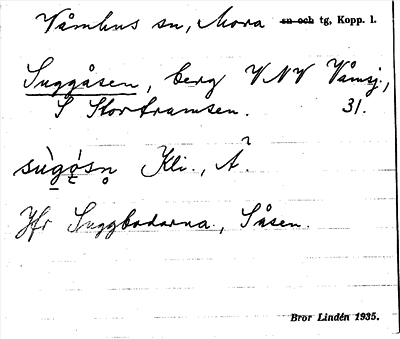 Våmhus sn, Mora sn och tg, Kopp. l.
Suggåsen, berg VNV Våmsj.,
S Stortramsen. 31.
sùgo̜sn Kli., Ä?
Jfr Suggbodarna, Såsen.
Bror Lindén 1935.